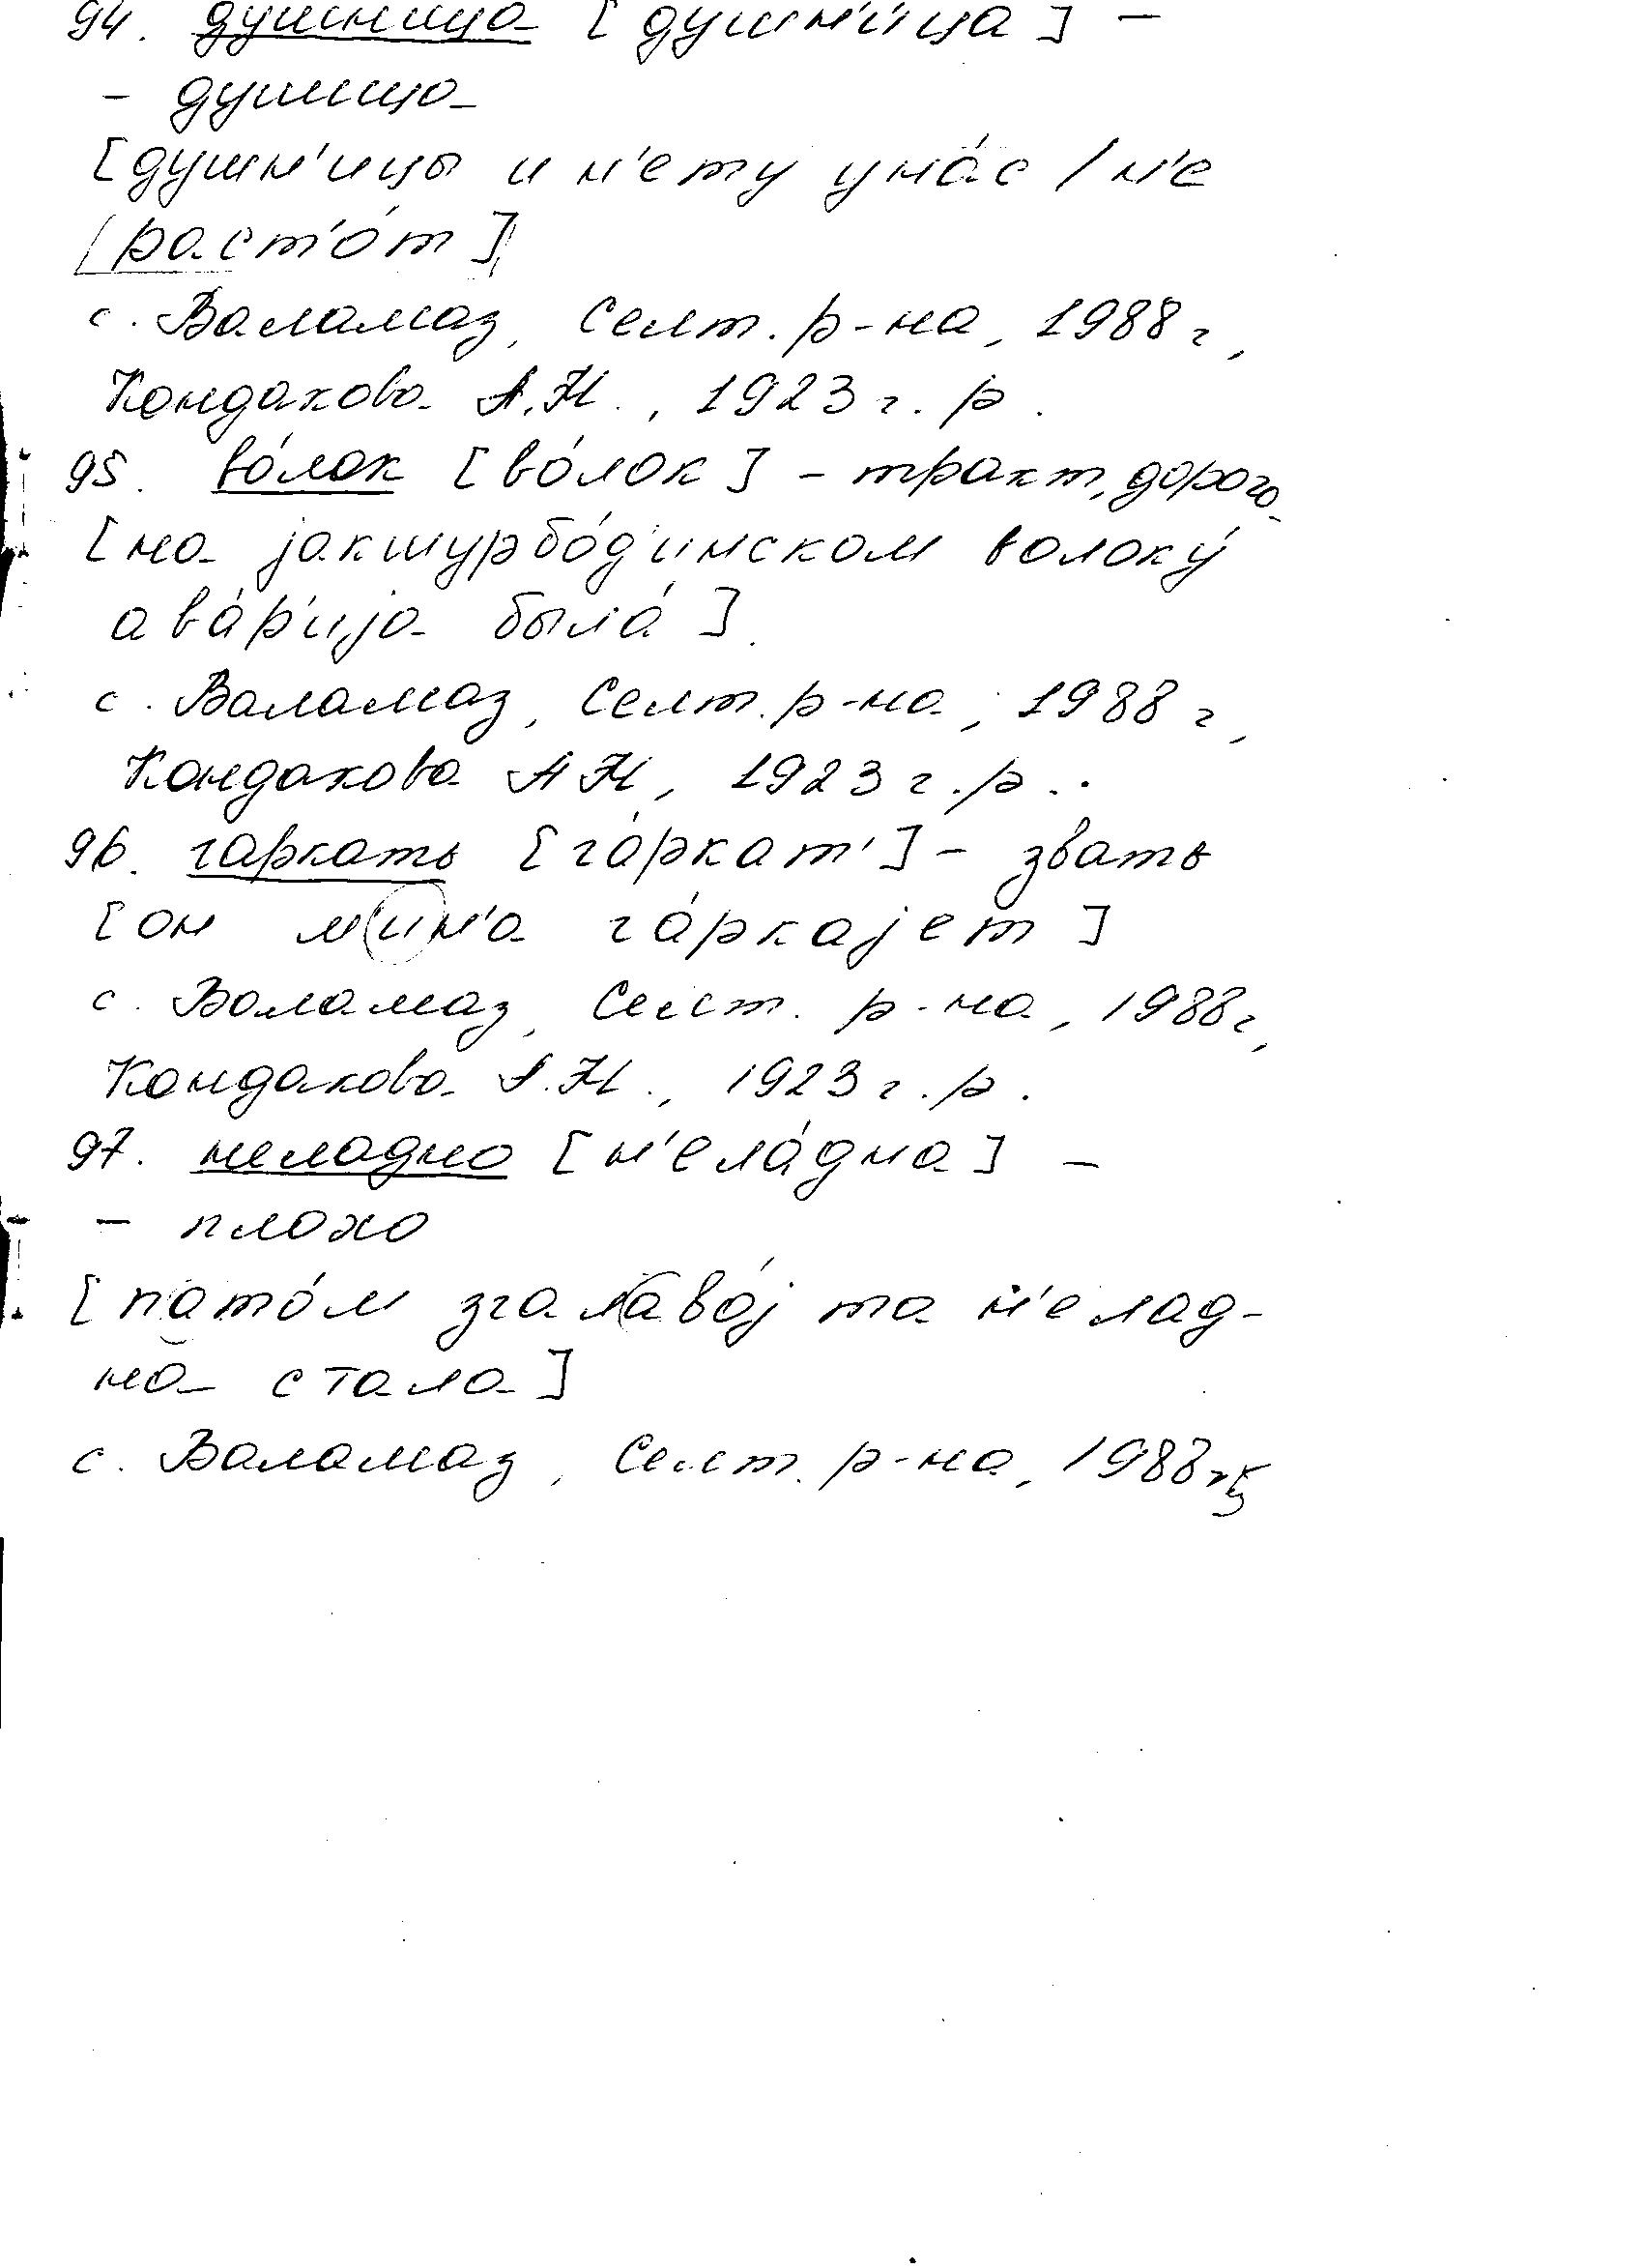 94. душница [душн'и́ца] –
– душица
[душн'ицы и н'ету уна́с / н'е
[раст'о́т]
с. Валамаз, Селт. р-на, 1988 г,
Кондакова А.Н., 1923 г. р.
95. во́лок [во́лок] – тракт, дорога
[на јакшурбо́д'инском волоку́
ава́р'ија была́].
с. Валамаз, Селт. р-на, 1988 г,
Кондакова А Н, 1923 г. р..
96. гаркать [га́ркат'] – звать
[он м'ин'а га́ркајет]
с. Валамаз, Селт. р-на, 1988 г,
Кондакова А.Н., 1923 г. р.
97. неладно [н'ела́дна] –
– плохо
[пато́м згалаво́ј та н'елад-
на стала]
с. Валамаз, Селт. р-на, 1988 г,